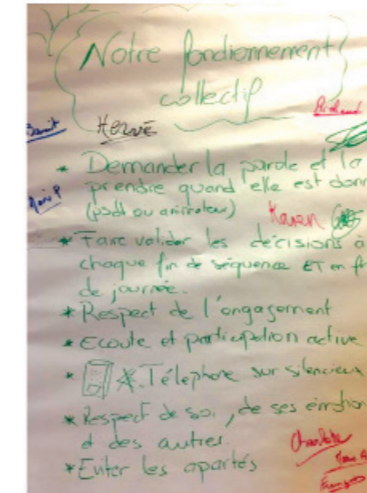 Notre fonctionnement
collectif
Richard
Benoit
HERVÉ
* Demander la parole et la
prendre quand elle est donn
(post ou animateur)
Marie P
Karen
* Faire valider les décisions à
chaque fin de séquence ET en f
de journée.
* Respect de l'engagement
* Ecoute et participation active
* Téléphone sur silencieux
* Respect de soi, de ses émotion
et des autres.
Charlotte
* Eviter les apartés
François